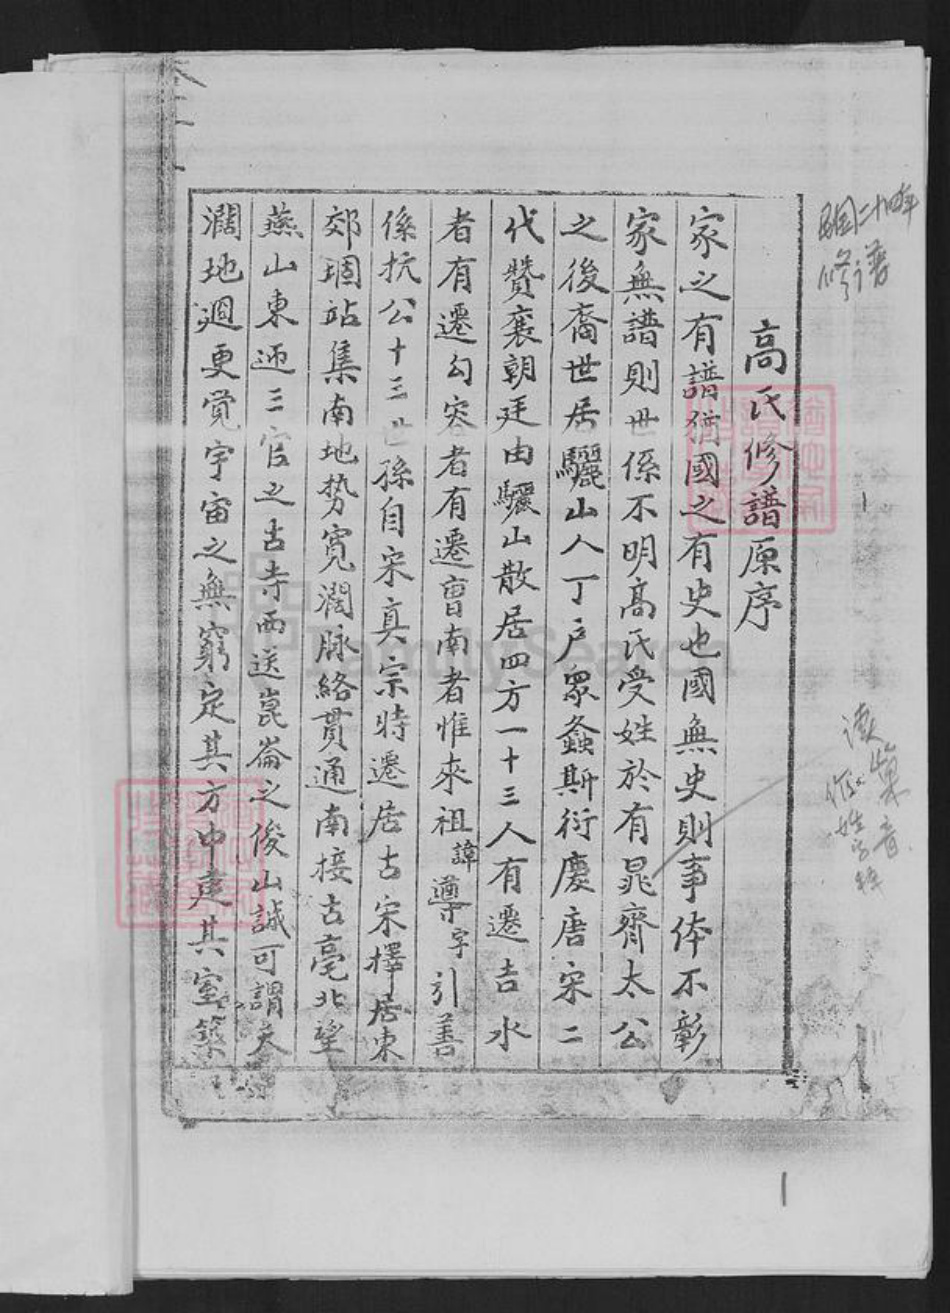 民國二十四年
修譜
高氏修譜原序
家之有譜猶國之有史也國無史則事体不彰
家無譜則世係不明高氏受姓於有晁齊太公
之後裔世居驪山人丁戶眾螽斯衍慶唐宋二
代贊襄朝廷由驪山散居四方一十三人有遷吉水
者有遷勾容者有遷曺南者惟來祖諱遵字引善
係抗公十三世孫自宋真宗時遷居古宋擇居東
郊堌站集南地势寬濶脉絡貫通南接古亳北望
燕山東迎三官之古寺西送崑崙之俊山誠可謂天
濶地廻更覚宇宙之無窮定其方中建其室築
讀巢音
作姓字解
FamilySearch
1